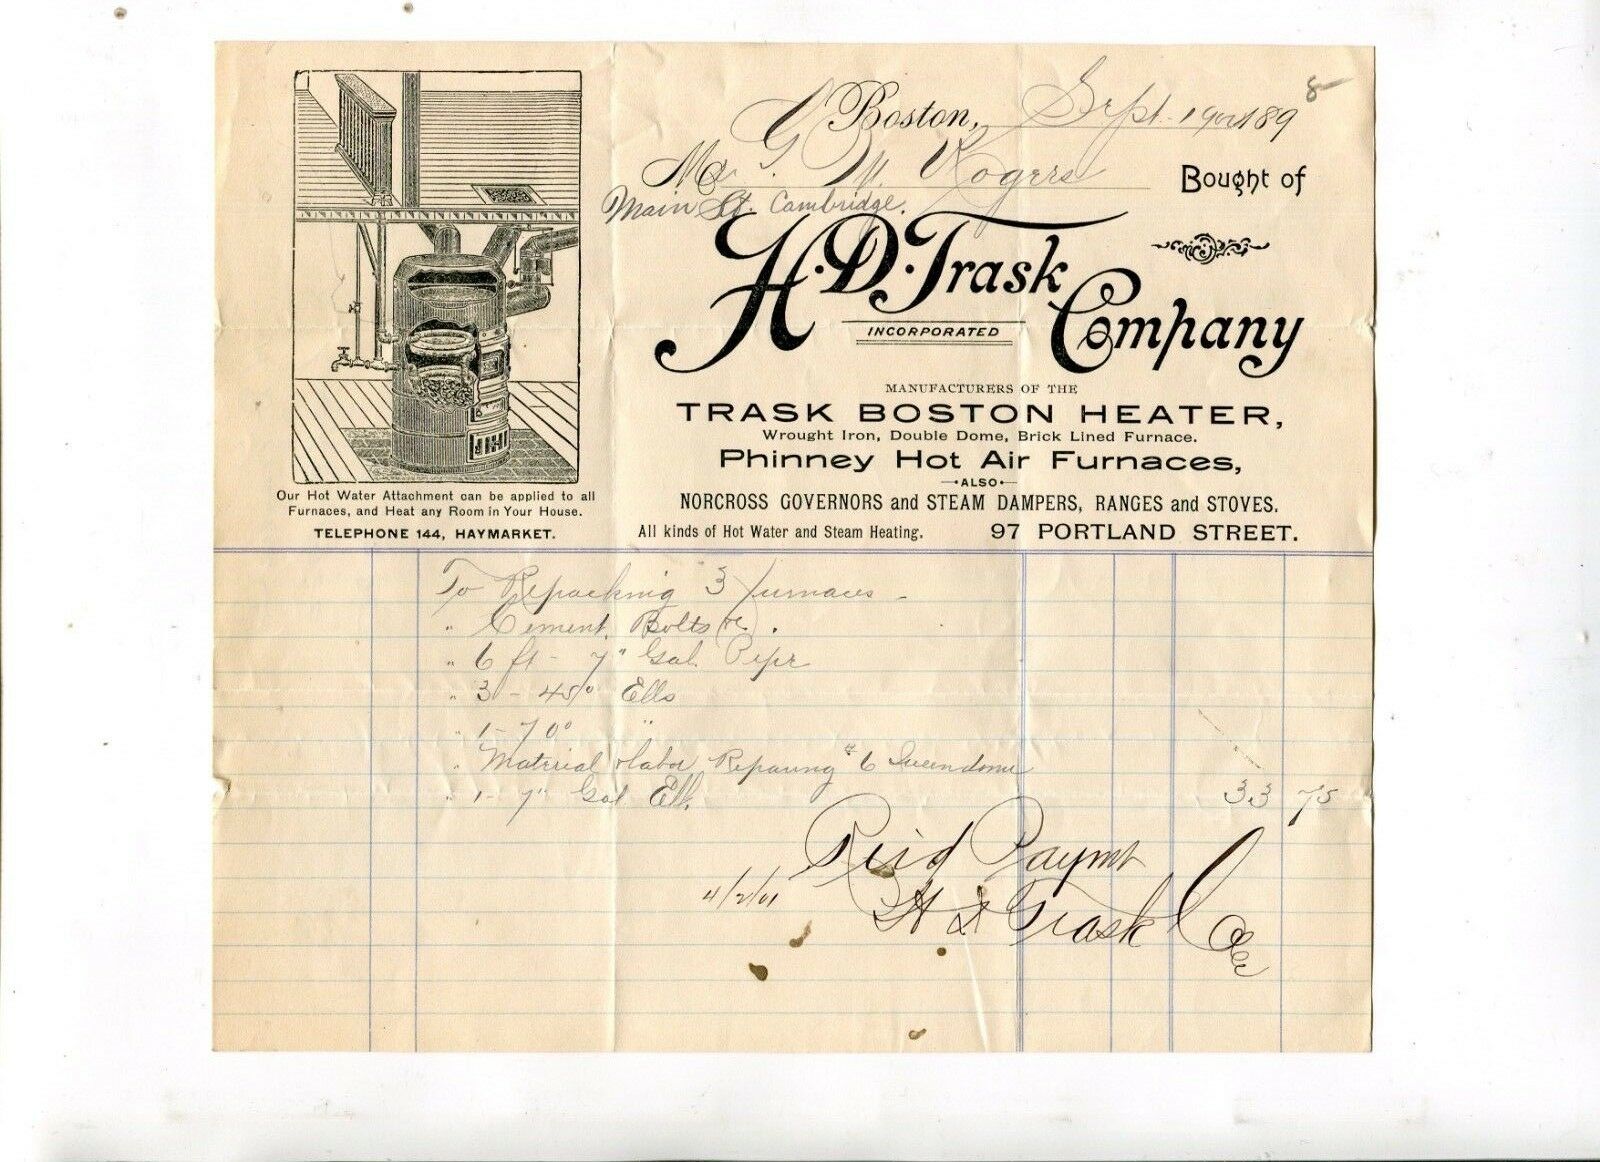 8
Boston, Sept. 1900 189
M G. M. Rogers
Bought of
Main St. Cambridge.
H. D. Trask
INCORPORATED
Company
MANUFACTURERS OF THE
TRASK BOSTON HEATER,
Wrought Iron, Double Dome, Brick Lined Furnace.
Phinney Hot Air Furnaces,
ALSO
NORCROSS GOVERNORS and STEAM DAMPERS, RANGES and STOVES.
All kinds of Hot Water and Steam Heating. 97 PORTLAND STREET.
Our Hot Water Attachment can be applied to all
Furnaces, and Heat any Room in Your House.
TELEPHONE 144, HAYMARKET.
To Repacking 3 furnaces -
" Cement, Bolts &c.
" 6 ft - 7" Gal. Pipe
" 3 - 45° Ells
" 1 - 70° "
" Material & labor Reparing # 6
" 1 - 7" Gal Ell. 33 75
Paymt
4/2/01 H D Trask Co